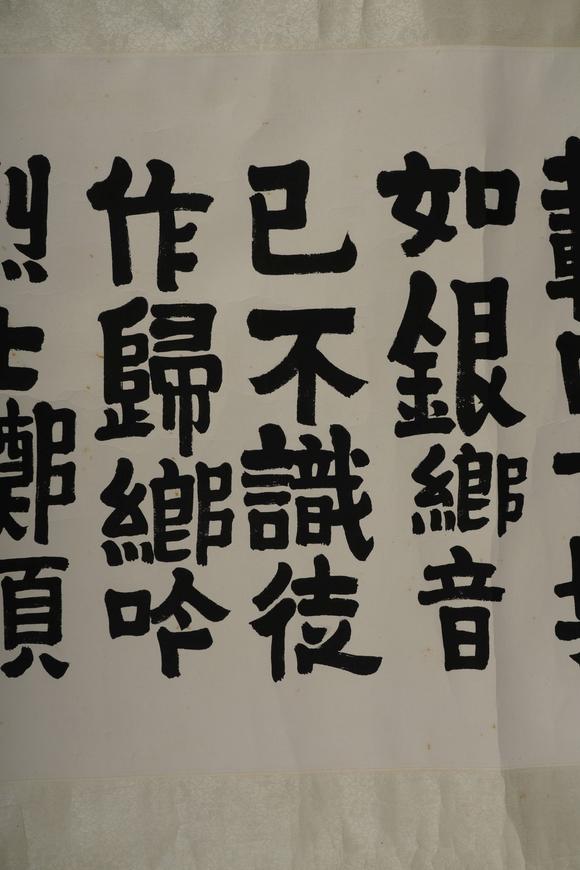 如銀鄉音
已不識徒
作歸鄉吟
烈士鄭順